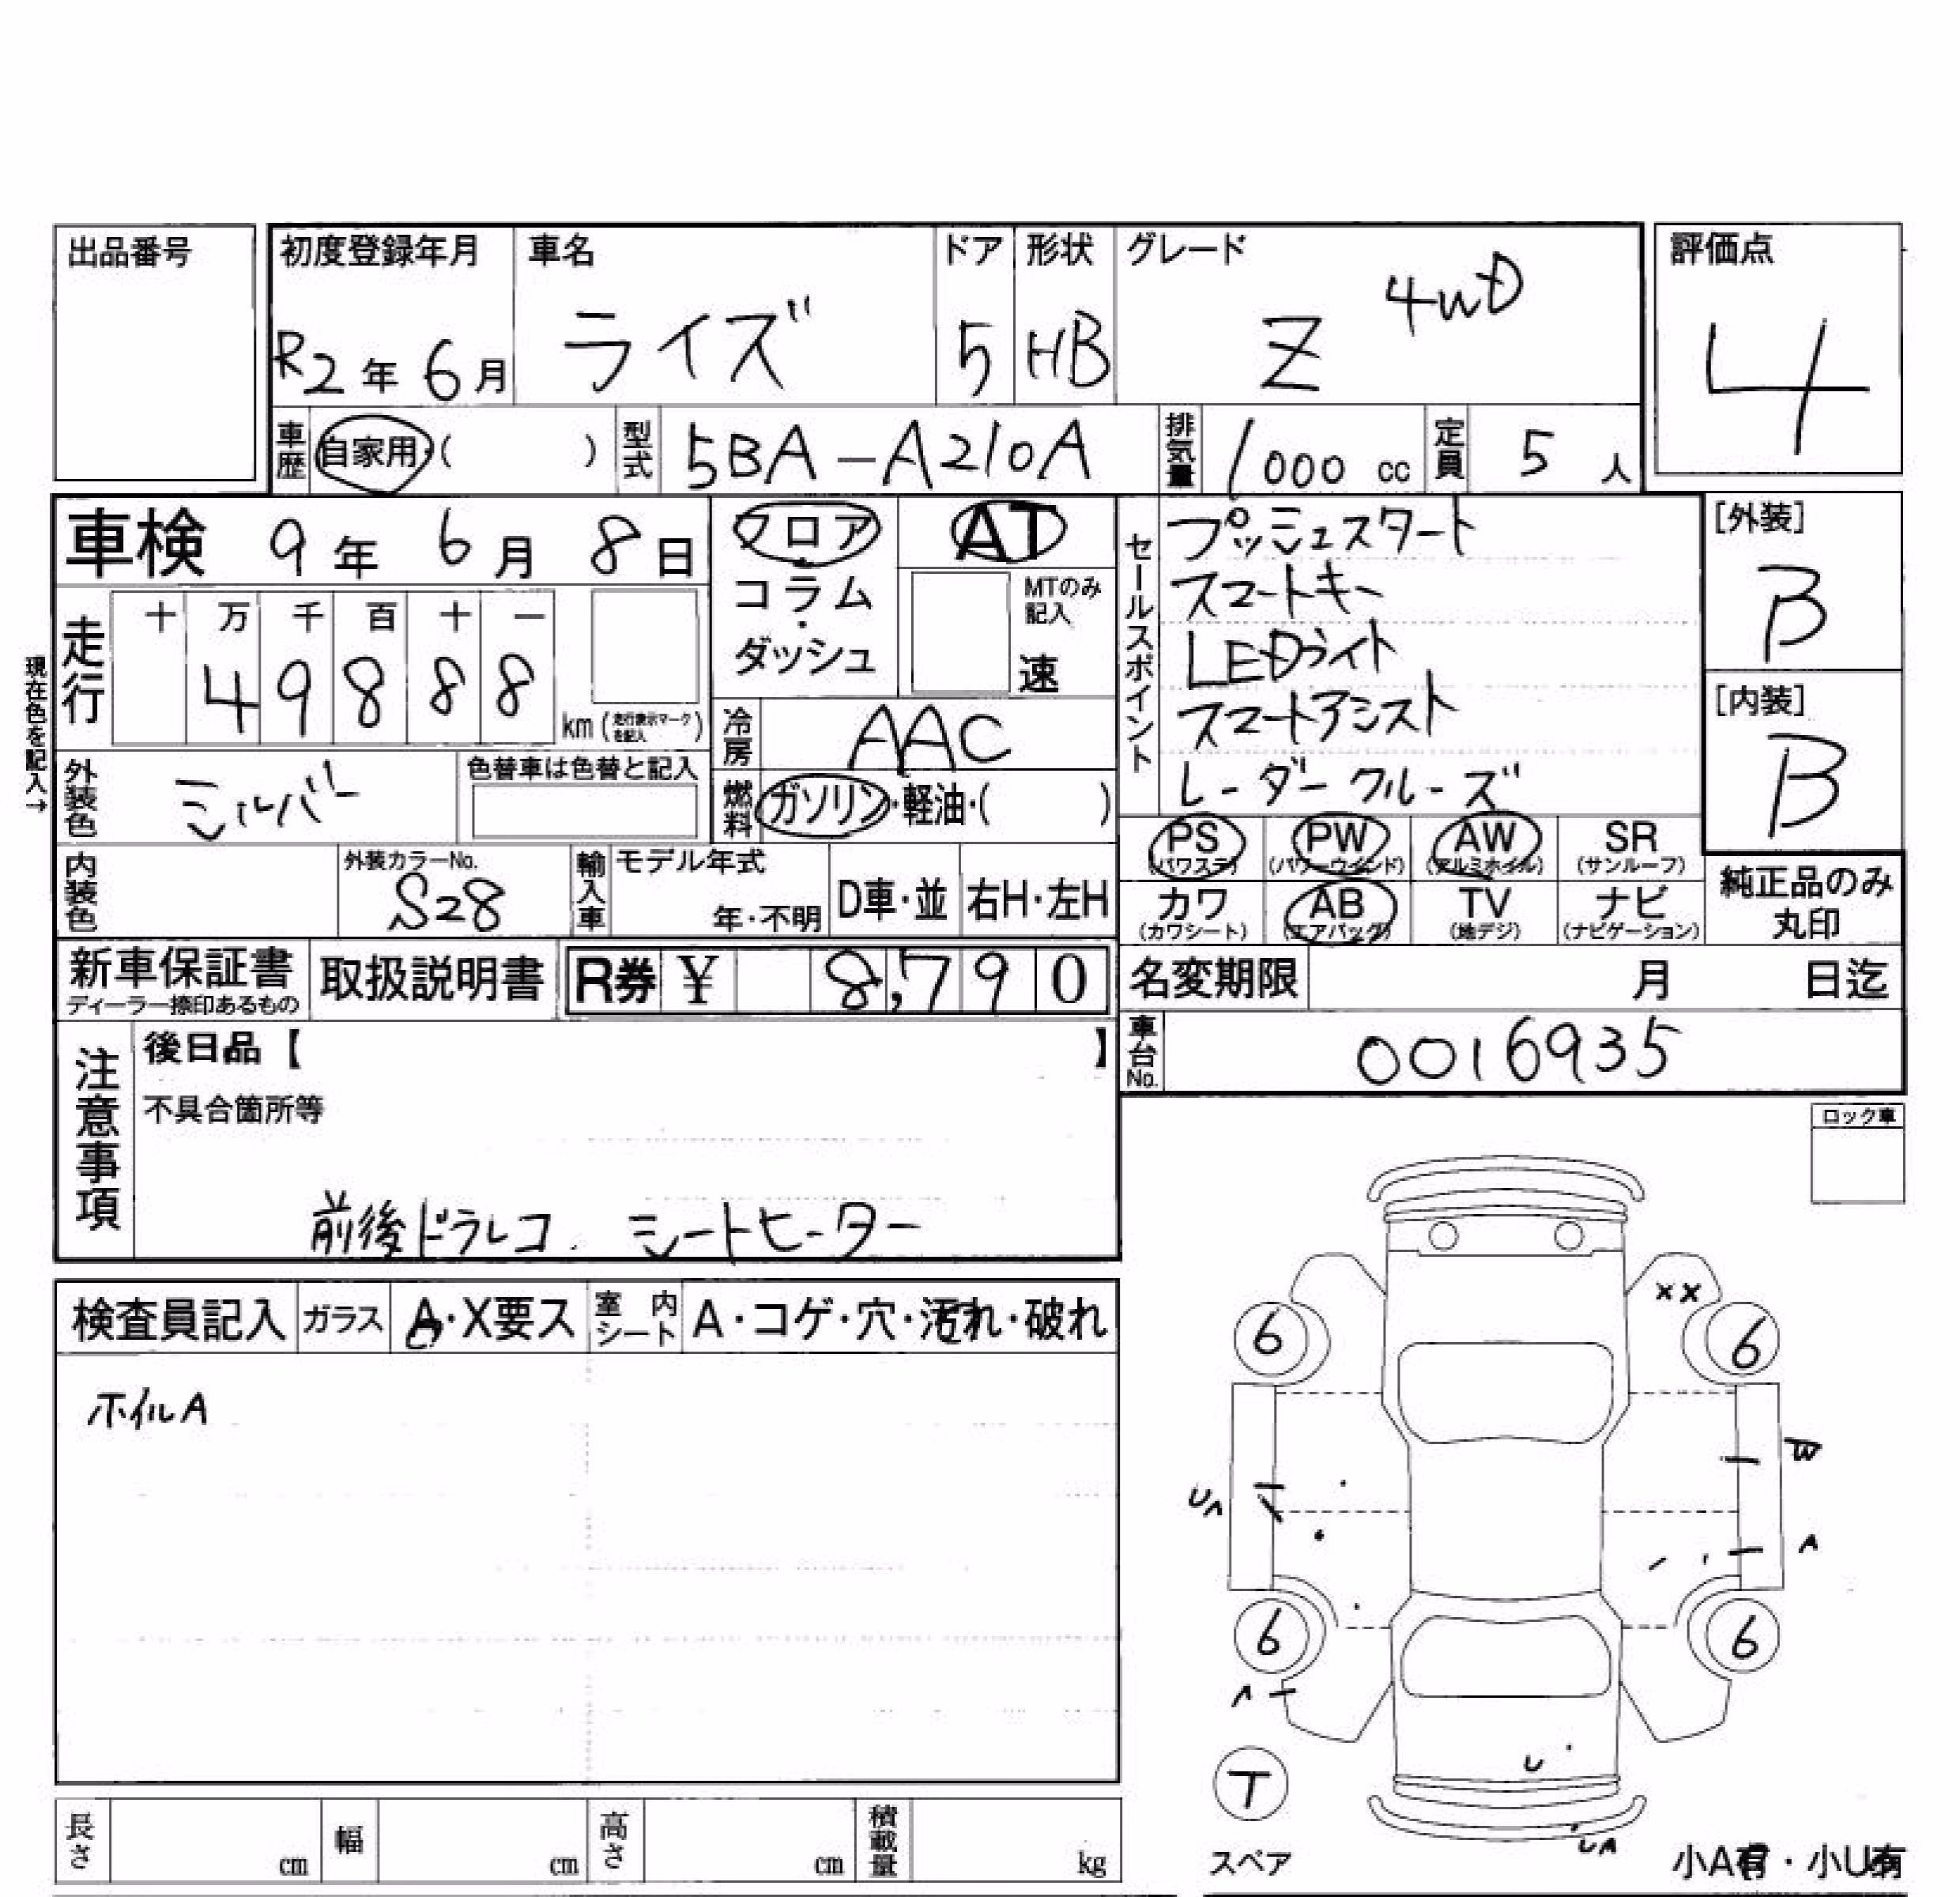 出品番号
初度登録年月 車名 ドア 形状 グレード 評価点
R2年6月 ライズ 5 HB Z 4WD 4
車歴 自家用・( ) 型式 5BA-A210A 排気量 1000 cc 定員 5人
車検 9年6月8日
フロア・コラム・ダッシュ
AT
MTのみ記入
速
走行 十 万 千 百 十 一
49888
km(走行表示マークを記入)
現在色を記入→
冷房 AAC
燃料 ガソリン・軽油・( )
外装色 シルバー 色替車は色替と記入
内装色 外装カラーNo. S28 輸入車 モデル年式 年・不明 D車・並 右H・左H
セールスポイント
プッシュスタート
スマートキー
LEDライト
スマートアシスト
レーダークルーズ
[外装]
B
[内装]
B
PS(パワステ) PW(パワーウインド) AW(アルミホイル) SR(サンルーフ)
カワ(カワシート) AB(エアバッグ) TV(地デジ) ナビ(ナビゲーション)
純正品のみ
丸印
新車保証書 取扱説明書 R券 ¥ 8,790
ディーラー捺印あるもの
名変期限 月 日迄
車台No. 0016935
注意事項
後日品【 】
不具合箇所等
前後ドラレコ. シートヒーター
ロック車
検査員記入 ガラス A・X要ス 室内シート A・コゲ・穴・汚れ・破れ
ホイルA
XX
6 6
W
UA
A
6 6
A
U
T
スペア
UA
小A有・小U有
長さ cm 幅 cm 高さ cm 積載量 kg